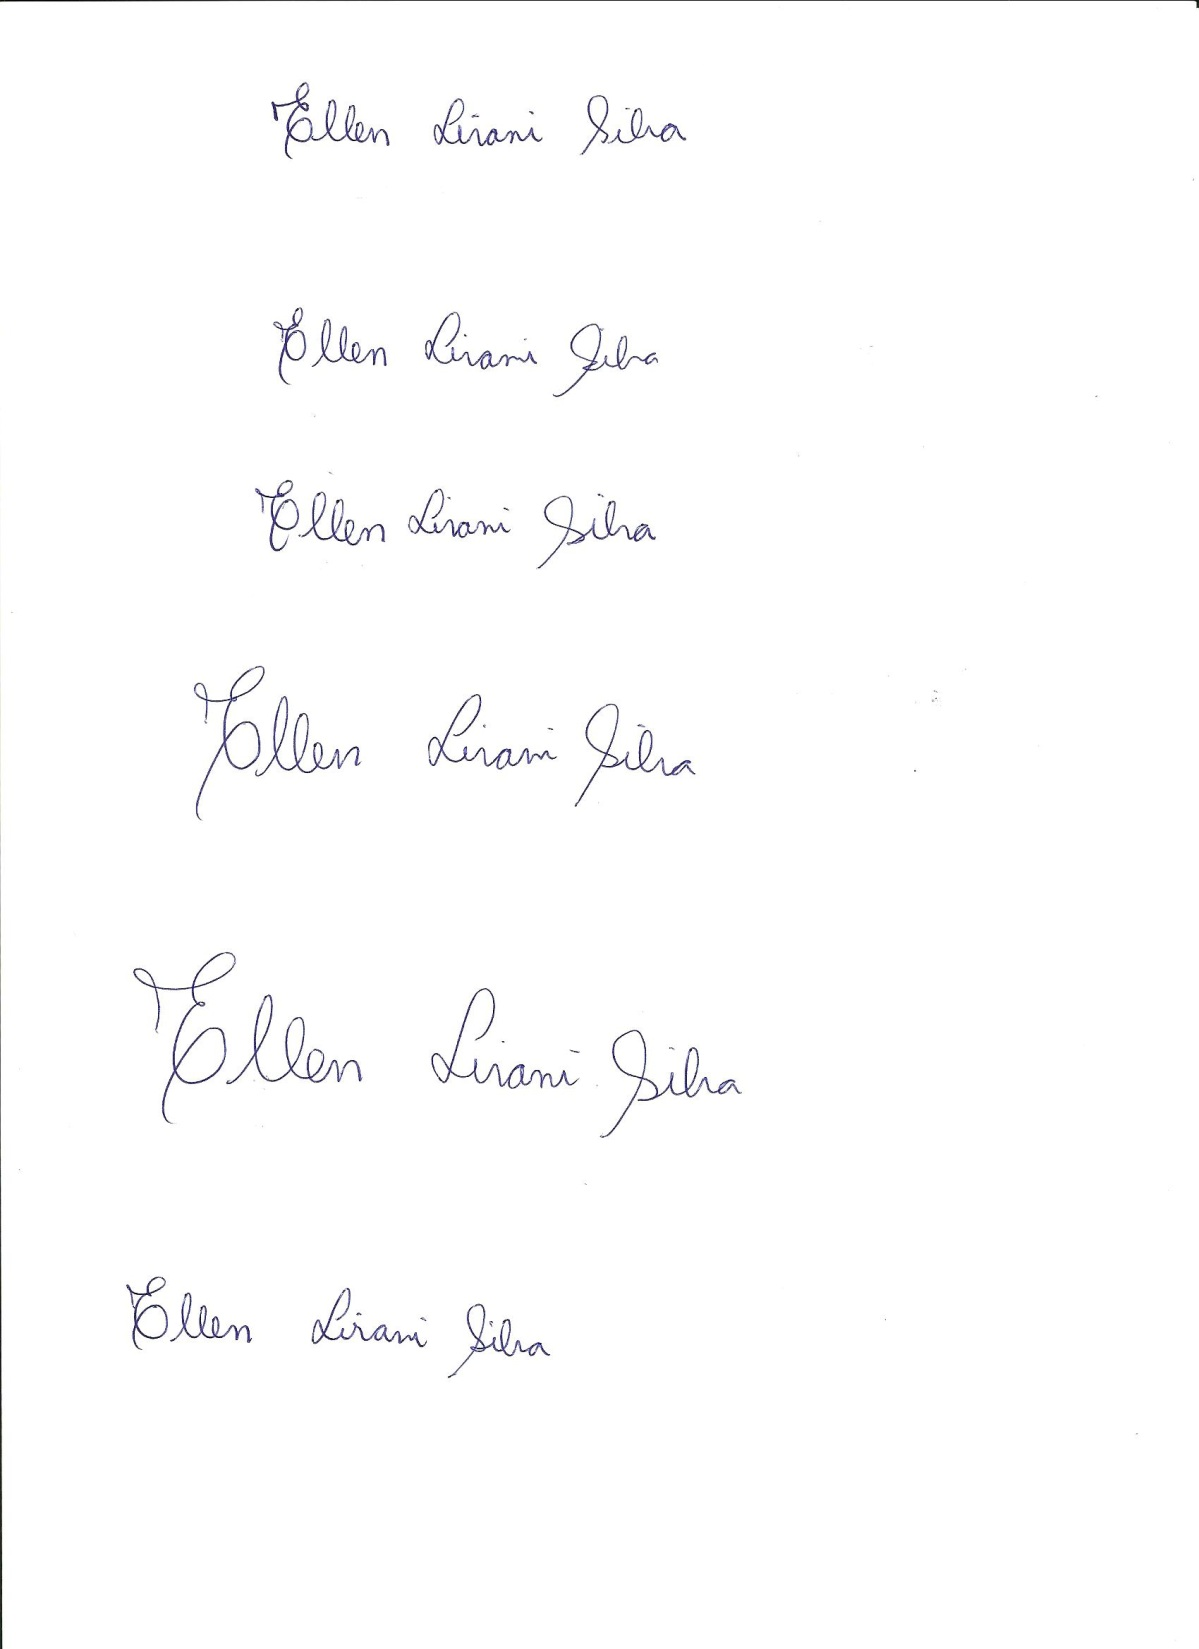 Ellen Lirani Silva
Ellen Lirani Silva
Ellen Lirani Silva
Ellen Lirani Silva
Ellen Lirani Silva
Ellen Lirani Silva